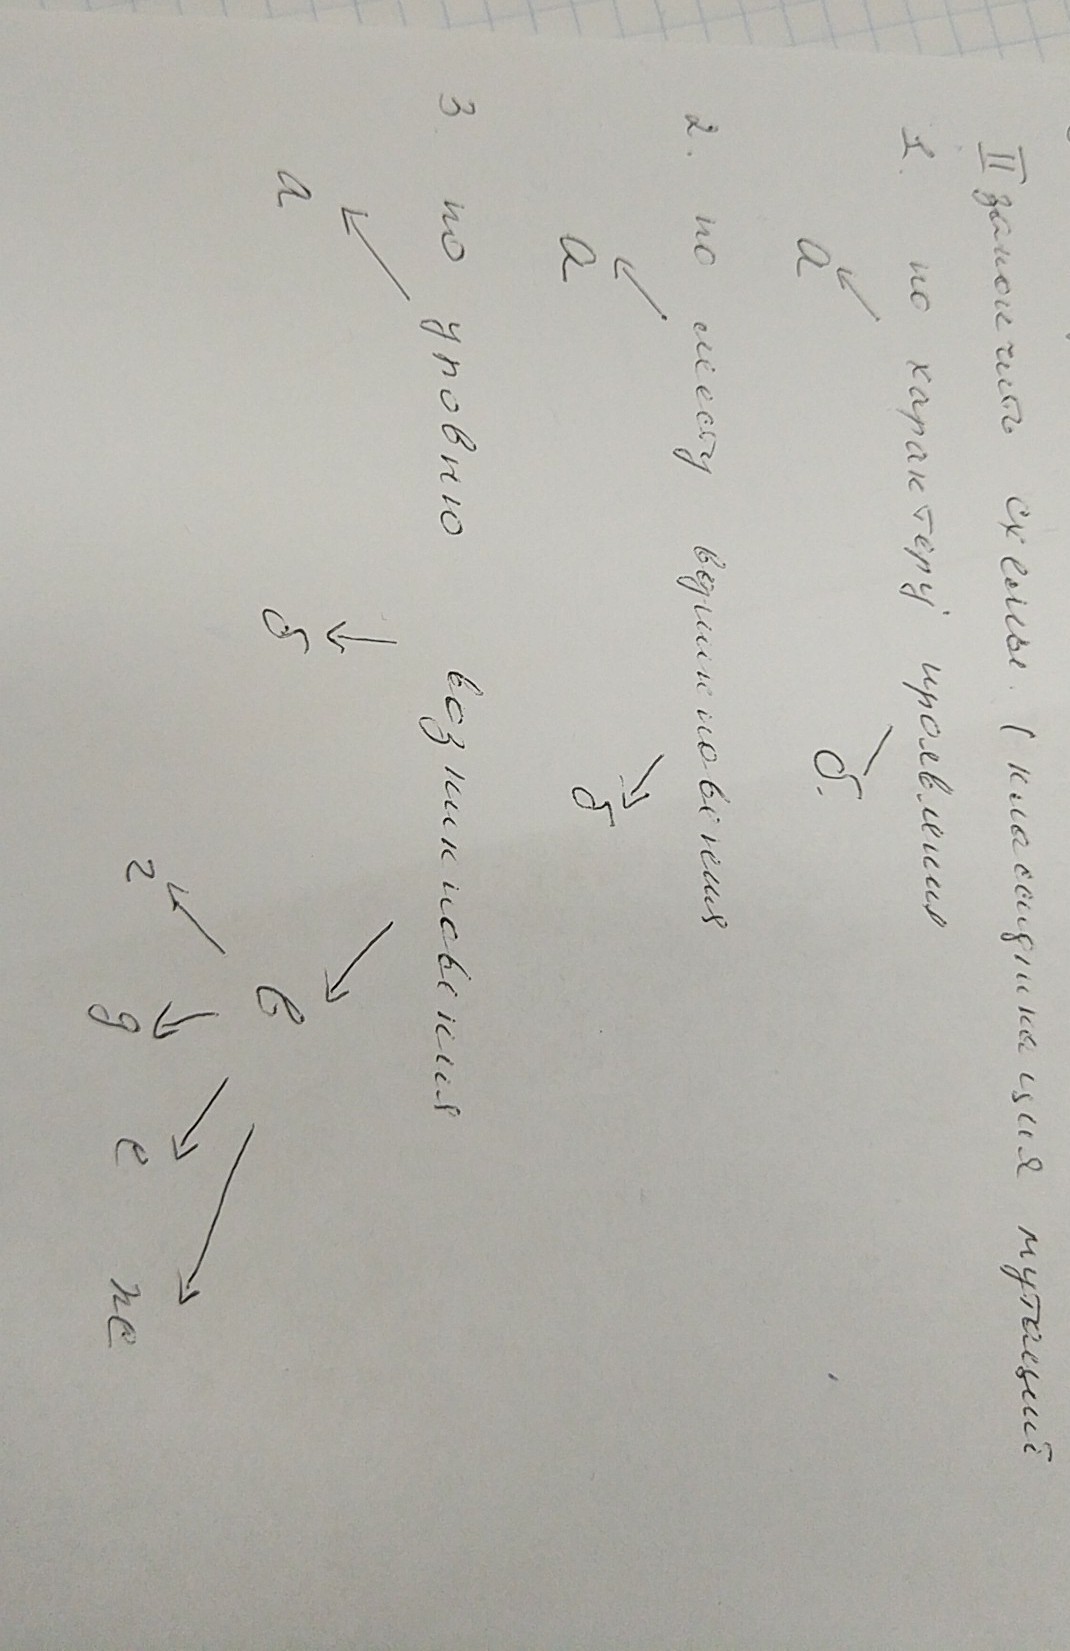 II закончить схемы. (классификация мутаций
1. по характеру проявления
а б.
2. по месту возникновения
а б
3. по уровню возникновения
а б в
г д е ж